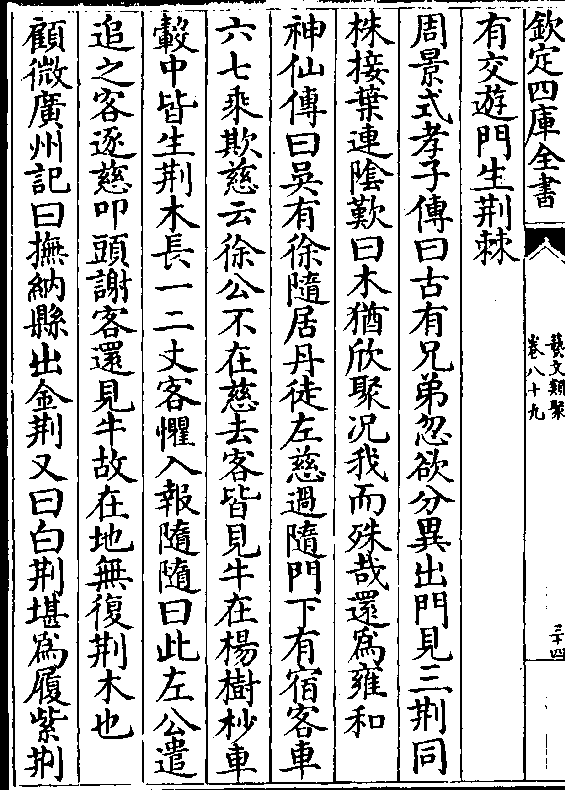 欽定四庫全書
藝文類聚
卷八十九
三十四
有交遊門生荆棘
周景式孝子傳曰古有兄弟忽欲分異出門見三荆同
株接葉連陰歎曰木猶欣聚况我而殊哉還爲雍和
神仙傳曰吳有徐隨居丹徒左慈過隨門下有宿客車
六七乘欺慈云徐公不在慈去客皆見牛在楊樹杪車
轂中皆生荆木長一二丈客懼入報隨隨曰此左公遣
追之客逐慈叩頭謝客還見牛故在地無復荆木也
顧微廣州記曰撫納縣出金荆又曰白荆堪爲履紫荆